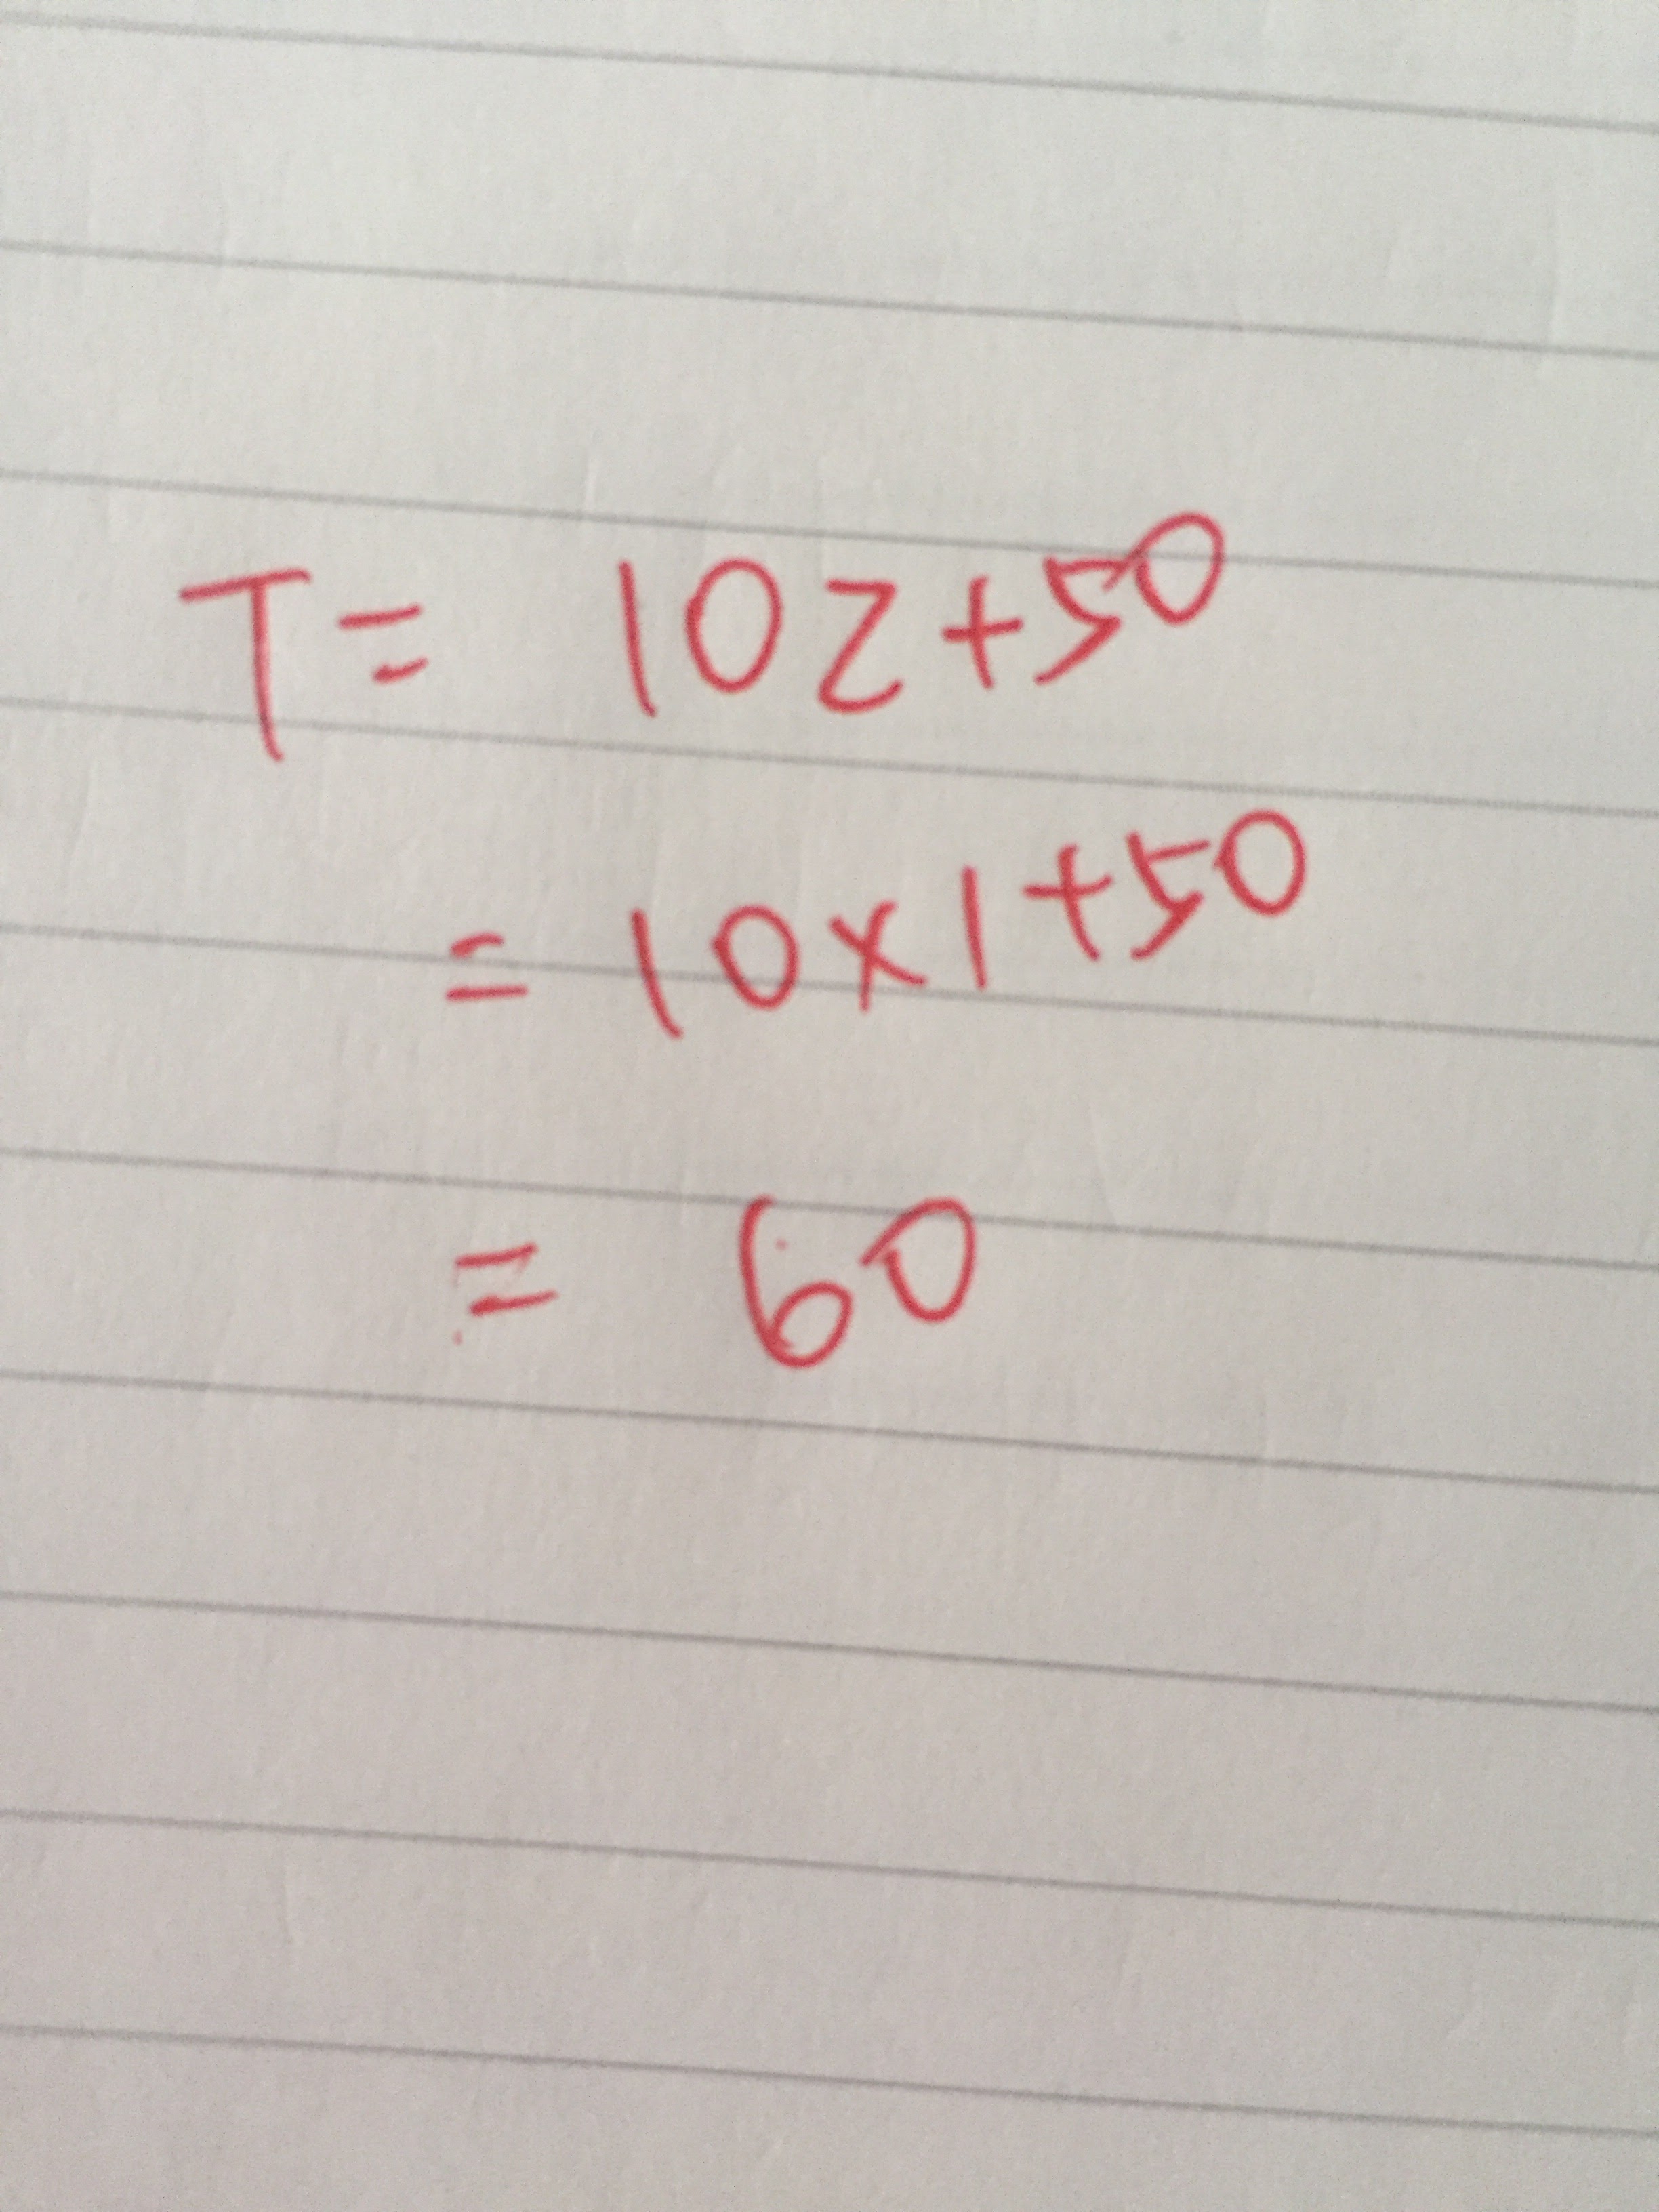 T = 10z+50
= 10x1+50
= 60